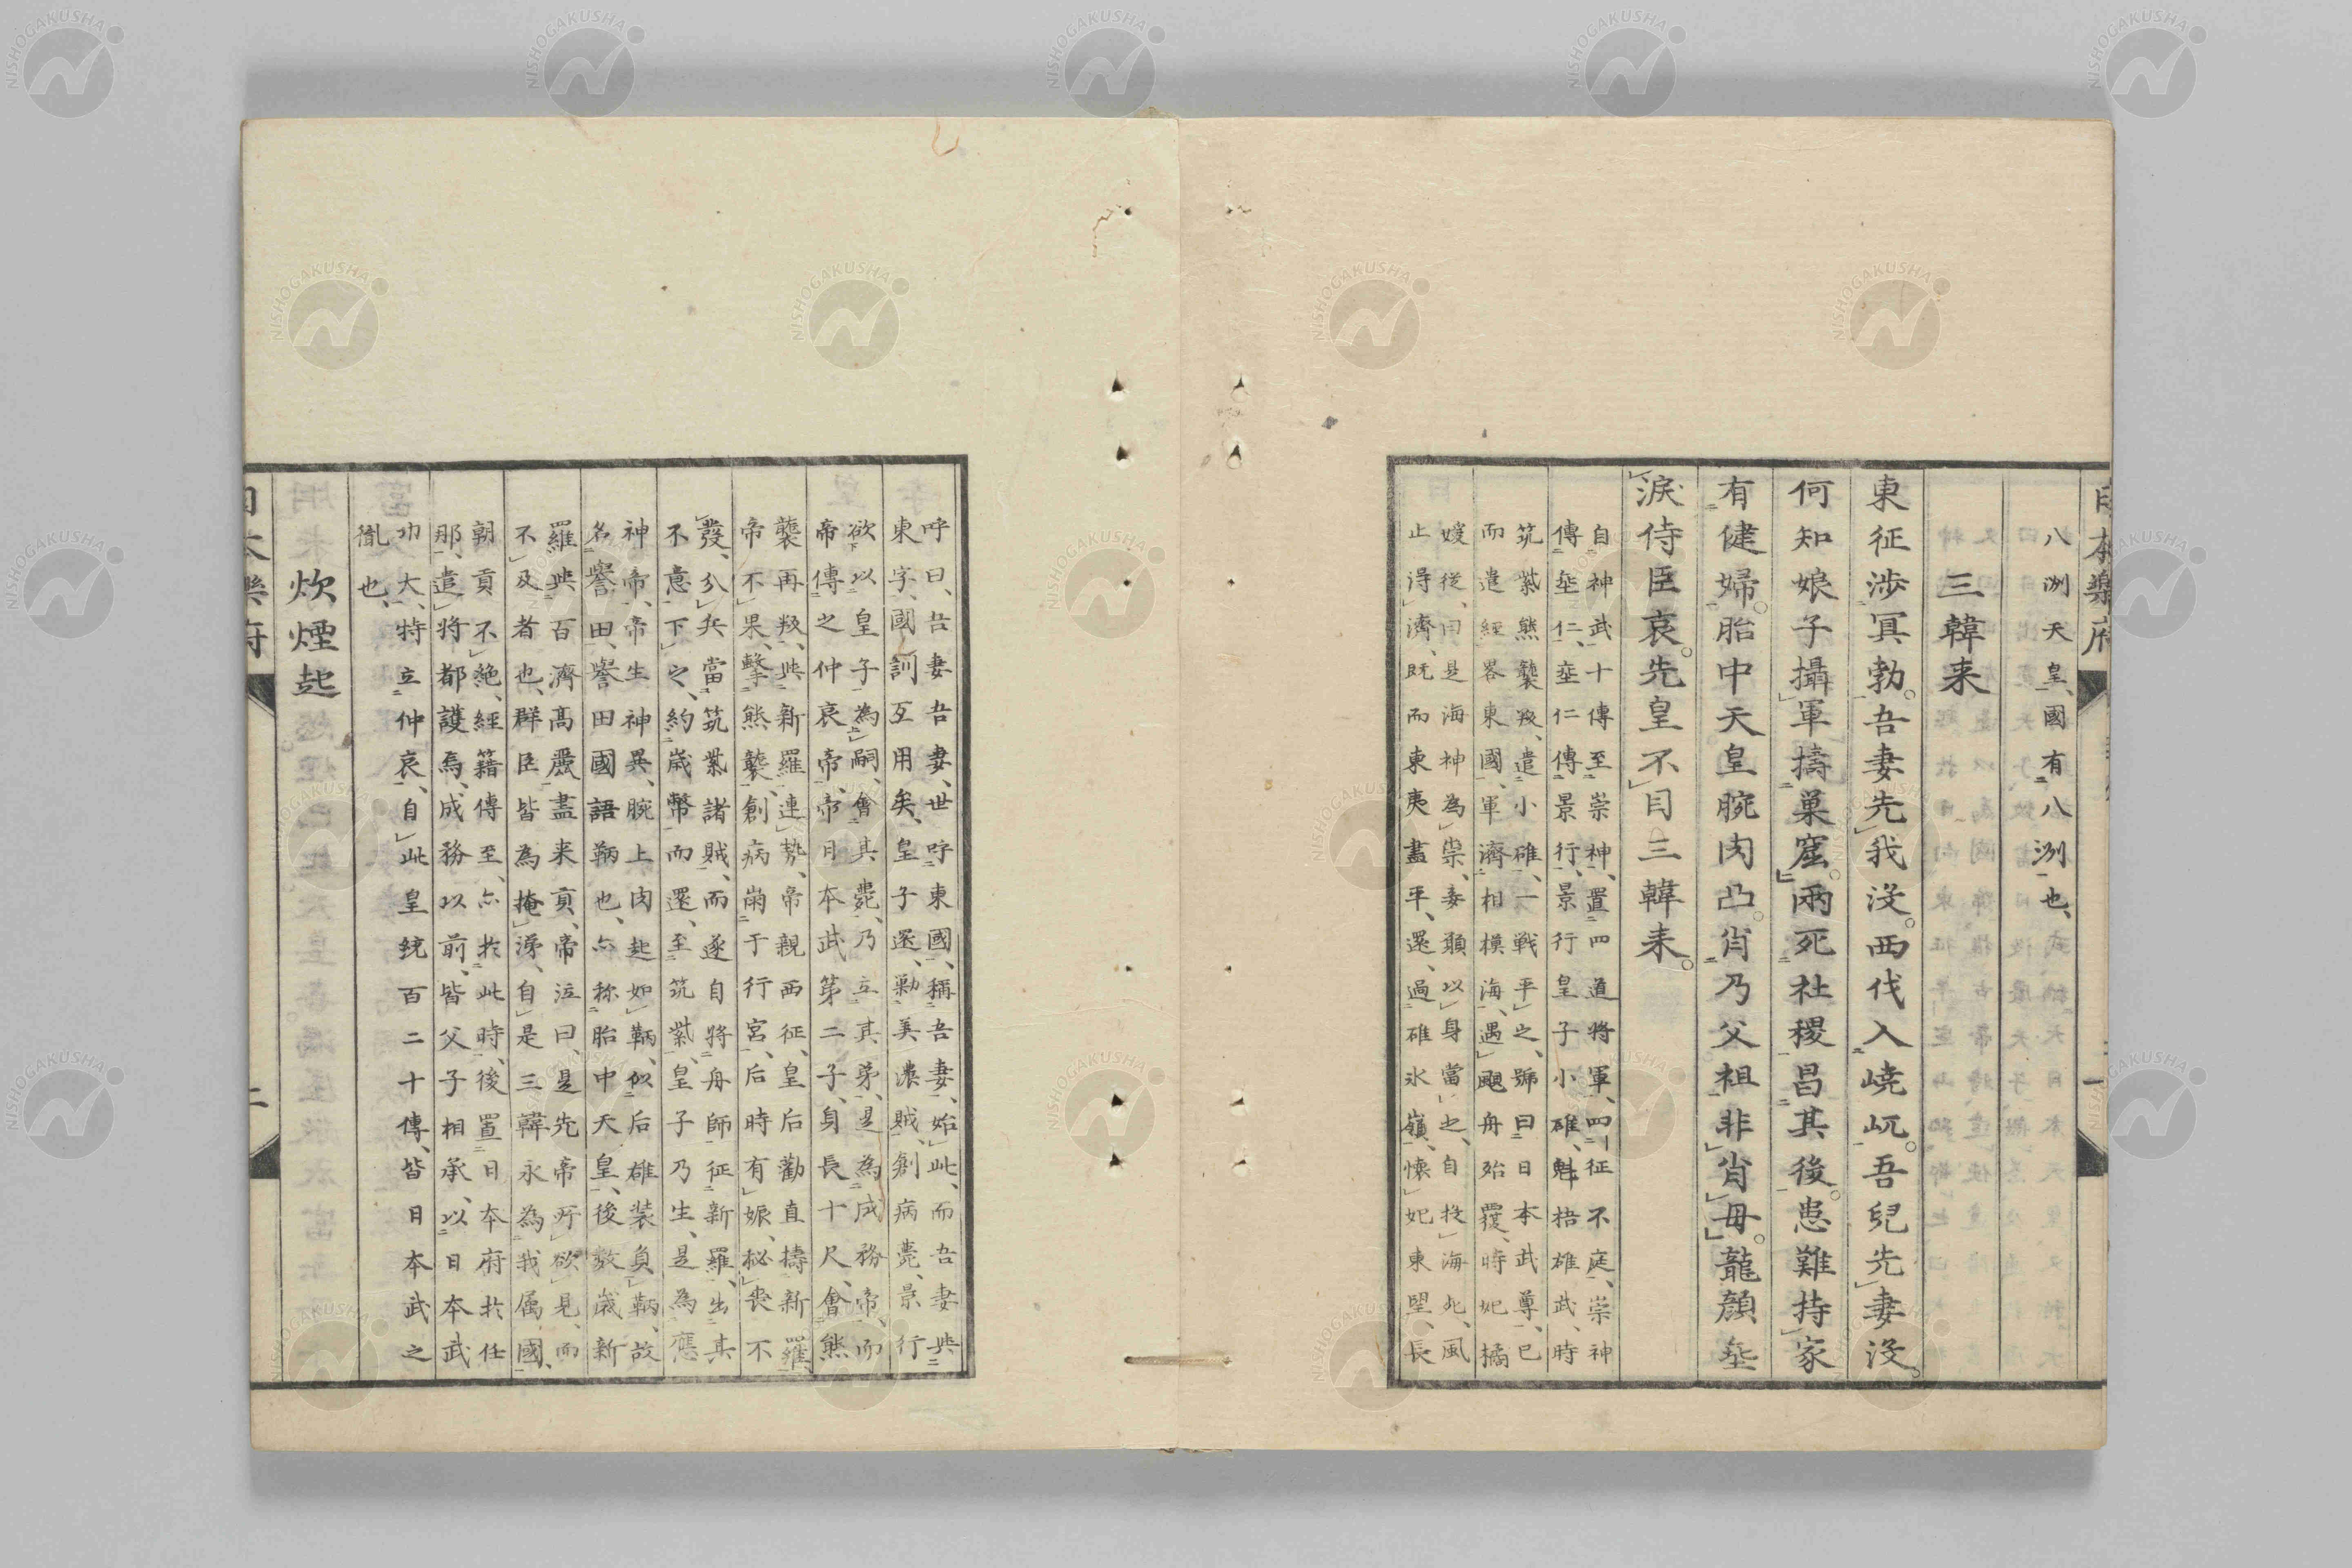 日本樂府
八洲天皇、國有八洲也、
三韓来
東征渉冥勃。吾妻先我沒。西伐入嶢屼。吾兒先妻沒。
何知娘子攝軍擣巢窟。兩死社稷昌其後。患難持家
有健婦。胎中天皇腕肉凸。肖乃父祖非肖母。龍顔埀
淚侍臣哀。先皇不目三韓来。
自神武十傳至崇神、置四道將軍、四征不庭、崇神
傳埀仁、埀仁傳景行、景行皇子小碓、魁梧雄武、時
筑紫熊襲叛、遣小碓、一戦平之、號曰日本武尊、已
而遣經畧東國、軍濟相模海、遇颶舟殆覆、時妃橘
媛從、曰是海神為祟、妾願以身當之、自投海死、風
止得濟、既而東夷盡平、還、過碓氷嶺、懐妃東望、長
呼曰、吾妻吾妻、世呼東國、稱吾妻、始此、而吾妻與
東字、國訓互用矣、皇子還、勦美濃賊、創病薨、景行
欲以皇子為嗣、會其薨、乃立其弟、是為成務帝、而
帝傳之仲哀帝、帝日本武第二子、身長十尺、會熊
襲再叛、與新羅連勢、帝親西征、皇后勸直擣新羅、
帝不果、擊熊襲、創病崩于行宮、后時有娠、秘喪不
發、分兵當筑紫諸賊、而遂自將舟師征新羅、出其
不意下之、約歳幣而還、至筑紫、皇子乃生、是為應
神帝、帝生神異、腕上肉起如鞆、似后雄装負鞆、故
名譽田、譽田國語鞆也、亦称胎中天皇、後数歳新
羅與百濟高麗盡来貢、帝泣曰、是先帝所欲見、而
不及者也、群臣皆為掩涕、自是三韓永為我属國、
朝貢不絶、經籍傳至、亦於此時、後置日本府於任
那、遣將都護焉、成務以前、皆父子相承、以日本武
功大、特立仲哀、自此皇統百二十傳、皆日本武之
胤也、
炊煙起
日本樂府
二